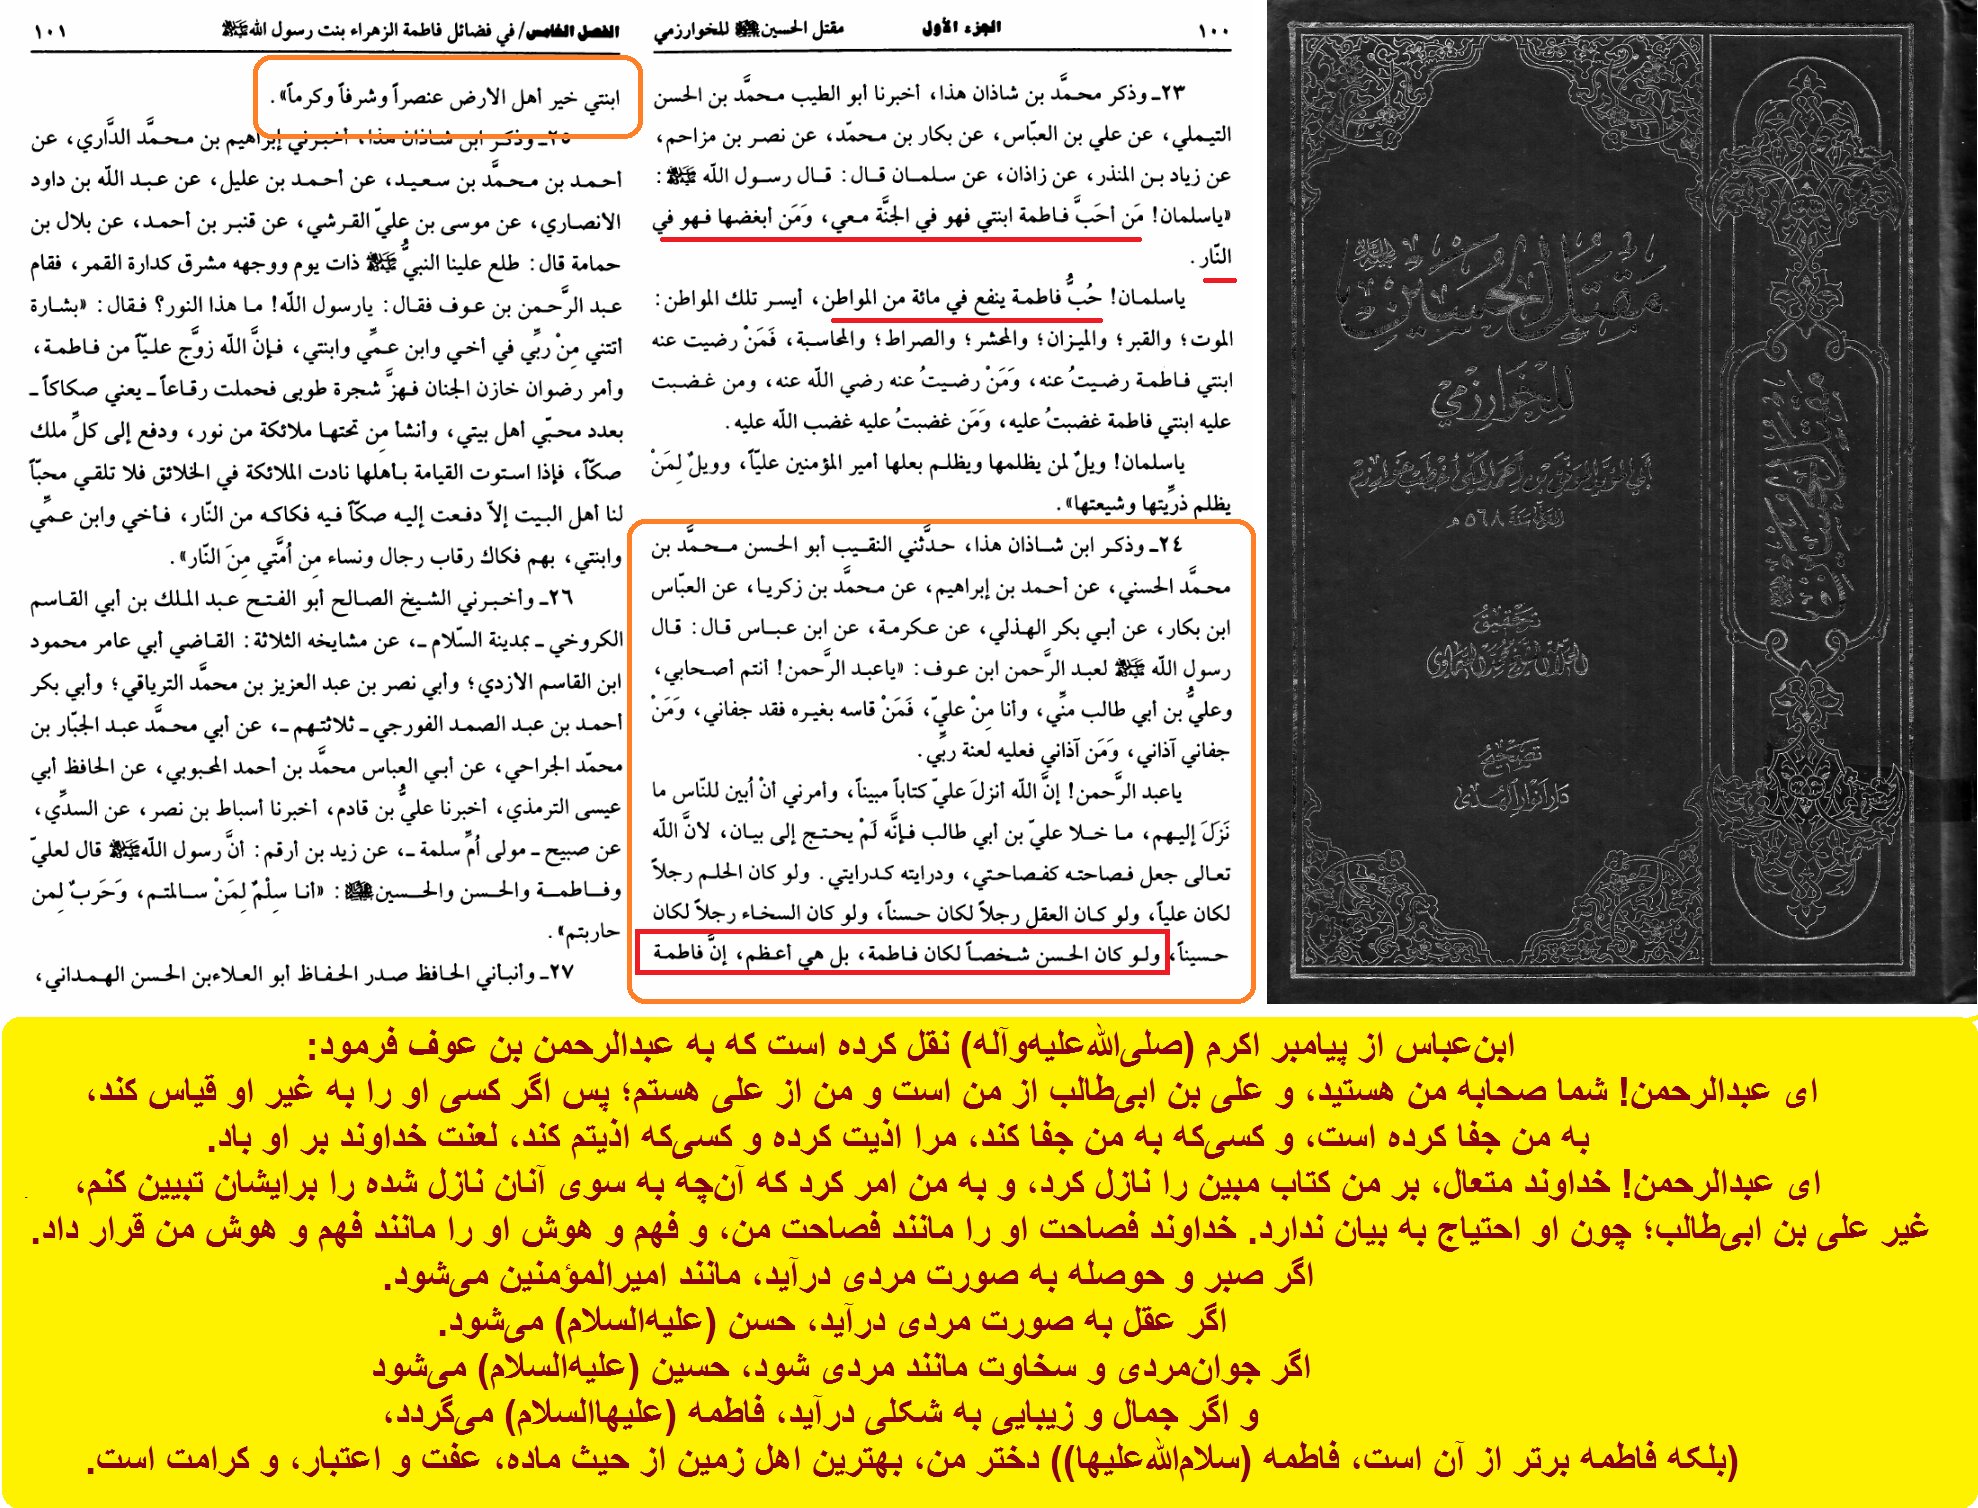 ١٠٠
الجزء الأول
مقتل الحسين ﷺ للخوارزمي
٢٣ـ وذكر محمَّد بن شاذان هذا، أخبرنا أبو الطيب محمَّد بن الحسن
التيملي، عن علي بن العبّاس، عن بكار بن محمّد، عن نصر بن مزاحم،
عن زياد بن المنذر، عن زاذان، عن سلمان قال: قال رسول اللّه ﷺ:
«ياسلمان! مَن أحَبَّ فاطمة ابنتي فهو في الجنَّة معي، وَمَن أبغضها فهو في
النّار.
ياسلمان! حُبُّ فاطمة ينفع في مائة من المواطن، أيسر تلك المواطن:
الموت؛ والقبر؛ والميزان؛ والمحشر؛ والصراط؛ والمحاسبة، فَمَنْ رضيت عنه
ابنتي فاطمة رضيتُ عنه، وَمَنْ رضيتُ عنه رضي اللّه عنه، ومن غضبت
عليه ابنتي فاطمة غضبتُ عليه، وَمَن غضبتُ عليه غضب اللّه عليه.
ياسلمان! ويلٌ لمن يظلمها ويظلم بعلها أمير المؤمنين عليّاً، وويلٌ لِمَنْ
يظلم ذرِّيتها وشيعتها».
٢٤ـ وذكر ابن شاذان هذا، حدَّثني النقيب أبو الحسن محمَّد بن
محمَّد الحسني، عن أحمد بن إبراهيم، عن محمَّد بن زكريا، عن العبّاس
ابن بكار، عن أبي بكر الهذلي، عن عكرمة، عن ابن عباس قال: قال
رسول اللّه ﷺ لعبد الرَّحمن ابن عوف: «ياعبد الرَّحمن! أنتم أصحابي،
وعليُّ بن أبي طالب منِّي، وأنا مِنْ عليّ، فَمَنْ قاسه بغيره فقد جفاني، وَمَنْ
جفاني آذاني، وَمَن آذاني فعليه لعنة ربِّي.
ياعبد الرَّحمن! إنَّ اللّه أنزلَ عليّ كتاباً مبيناً، وأمرني أنْ اُبين للنّاس ما
نَزَلَ إليهم، ما خلا عليّ بن أبي طالب فإنَّه لَمْ يحتج إلى بيان، لأنَّ اللّه
تعالى جعل فصاحته كفصاحتي، ودرايته كدرايتي. ولو كان الحلم رجلاً
لكان علياً، ولو كان العقل رجلاً لكان حسناً، ولو كان السخاء رجلاً لكان
حسيناً، ولو كان الحسن شخصاً لكان فاطمة، بل هي أعظم، إنَّ فاطمة
الفصل الخامس/ في فضائل فاطمة الزهراء بنت رسول اللهﷺ
١٠١
ابنتي خير أهل الأرض عنصراً وشرفاً وكرماً».
٢٥ـ وذكر ابن شاذان هذا، أخبرني إبراهيم بن محمَّد الدَّاري، عن
أحمد بن محمَّد بن سعيد، عن أحمد بن عليل، عن عبد اللّه بن داود
الانصاري، عن موسى بن عليّ القرشي، عن قنبر بن أحمد، عن بلال بن
حمامة قال: طلع علينا النبيُّ ﷺ ذات يوم ووجهه مشرق كدارة القمر، فقام
عبد الرَّحمن بن عوف فقال: يارسول اللّه! ما هذا النور؟ فقال: «بشارة
أتتني مِنْ ربِّي في أخي وابن عمِّي وابنتي، فإنَّ اللّه زوَّج عليّاً من فاطمة،
وأمر رضوان خازن الجنان فهزَّ شجرة طوبى فحملت رقاعاً ـ يعني صكاكاً ـ
بعدد محبّي أهل بيتي، وأنشأ مِن تحتها ملائكة من نور، ودفع إلى كلِّ ملك
صكّاً، فإذا استوت القيامة بأهلها نادت الملائكة في الخلائق فلا تلقي محبّاً
لنا أهل البيت إلاّ دفعت إليه صكّاً فيه فكاكه من النّار، فأخي وابن عمِّي
وابنتي، بهم فكاك رقاب رجال ونساء مِن اُمَّتي مِنَ النّار».
٢٦ـ وأخبرني الشيخ الصالح أبو الفتح عبد الملك بن أبي القاسم
الكروخي ـ بمدينة السّلام ـ، عن مشايخه الثلاثة: القاضي أبي عامر محمود
ابن القاسم الأزدي؛ وأبي نصر بن عبد العزيز بن محمَّد الترياقي؛ وأبي بكر
أحمد بن عبد الصمد الفورجي ـ ثلاثتهم ـ، عن أبي محمَّد عبد الجبّار بن
محمّد الجراحي، عن أبي العباس محمَّد بن أحمد المحبوبي، عن الحافظ أبي
عيسى الترمذي، أخبرنا عليُّ بن قادم، أخبرنا أسباط بن نصر، عن السدِّي،
عن صبيح ـ مولى اُمِّ سلمة ـ، عن زيد بن أرقم: أنَّ رسول اللّهﷺ قال لعليّ
وفاطمة والحسن والحسين: «أنا سِلْمٌ لِمَنْ سالمتم، وَحَربٌ لِمن
حاربتم».
٢٧ـ وأنبأني الحافظ صدر الحفاظ أبو العلاءبن الحسن الهمداني،
مقتل الحسين
للخوارزمي
أبي المؤيد الموفق بن أحمد المكي أخطب خوارزم
المتوفى سنة ٥٦٨ هـ
تحقيق
العلامة الشيخ محمد السماوي
تصحيح
دار أنوار الهدى
ابن‌عباس از پیامبر اکرم (صلی‌الله‌علیه‌وآله) نقل کرده است که به عبدالرحمن بن عوف فرمود:
ای عبدالرحمن! شما صحابه من هستید، و علی بن ابی‌طالب از من است و من از علی هستم؛ پس اگر کسی او را به غیر او قیاس کند،
به من جفا کرده است، و کسی‌که به من جفا کند، مرا اذیت کرده و کسی‌که اذیتم کند، لعنت خداوند بر او باد.
ای عبدالرحمن! خداوند متعال، بر من کتاب مبین را نازل کرد، و به من امر کرد که آن‌چه به سوی آنان نازل شده را برایشان تبیین کنم،
غیر علی بن ابی‌طالب؛ چون او احتیاج به بیان ندارد. خداوند فصاحت او را مانند فصاحت من، و فهم و هوش او را مانند فهم و هوش من قرار داد.
اگر صبر و حوصله به صورت مردی درآید، مانند امیرالمؤمنین می‌شود.
اگر عقل به صورت مردی درآید، حسن (علیه‌السلام) می‌شود.
اگر جوان‌مردی و سخاوت مانند مردی شود، حسین (علیه‌السلام) می‌شود
و اگر جمال و زیبایی به شکلی درآید، فاطمه (علیهاالسلام) می‌گردد،
(بلکه فاطمه برتر از آن است، فاطمه (سلام‌الله‌علیها)) دختر من، بهترین اهل زمین از حیث ماده، عفت و اعتبار، و کرامت است.